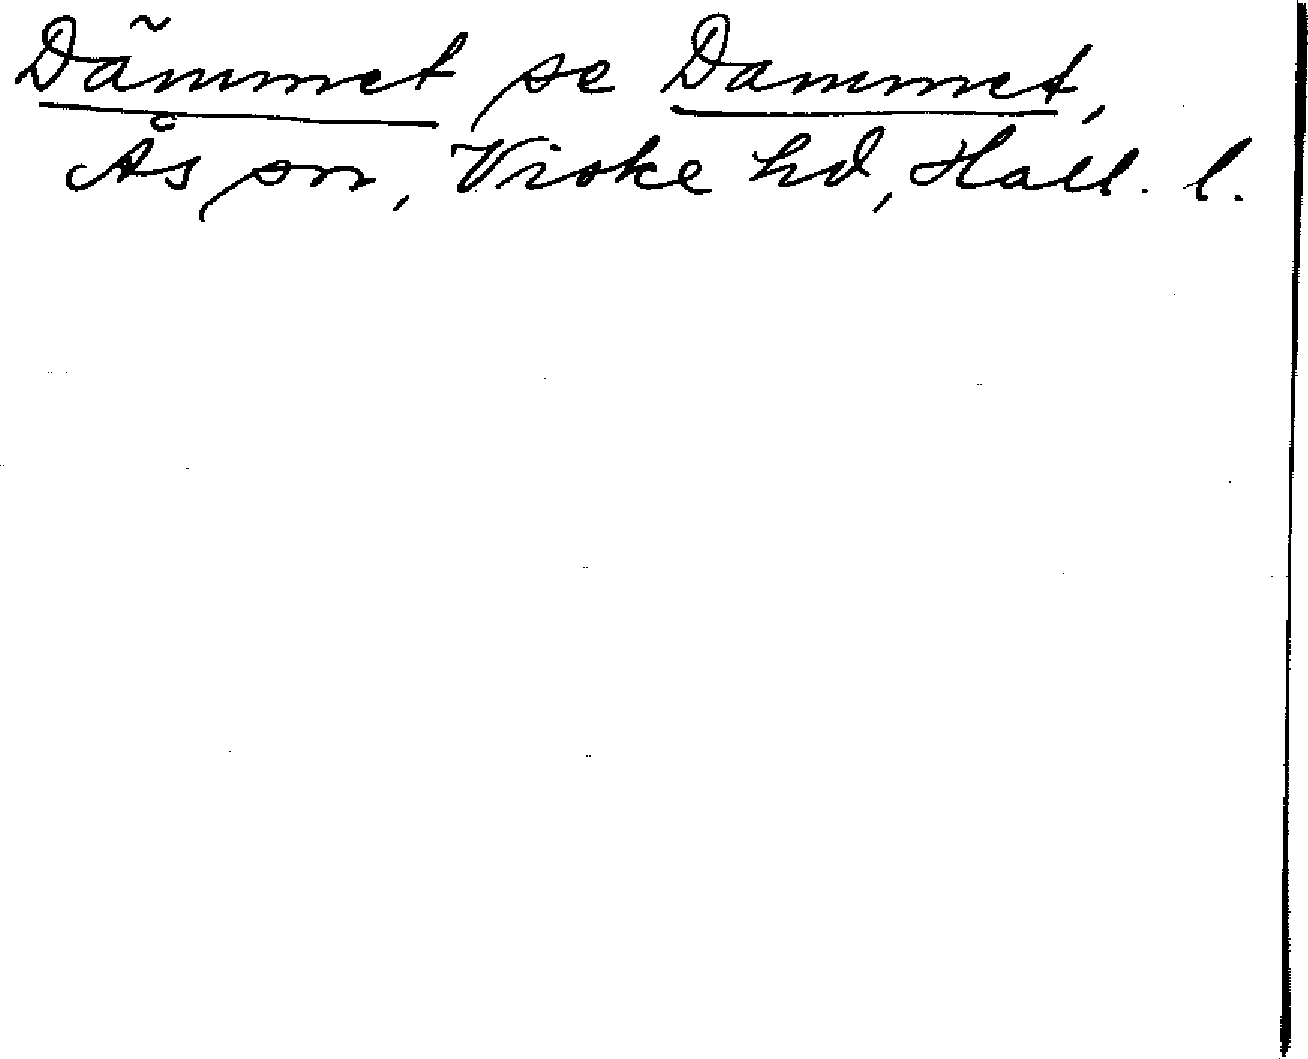 Dämmet se Dammet,
Ås sn, Viske hd, Hall. l.